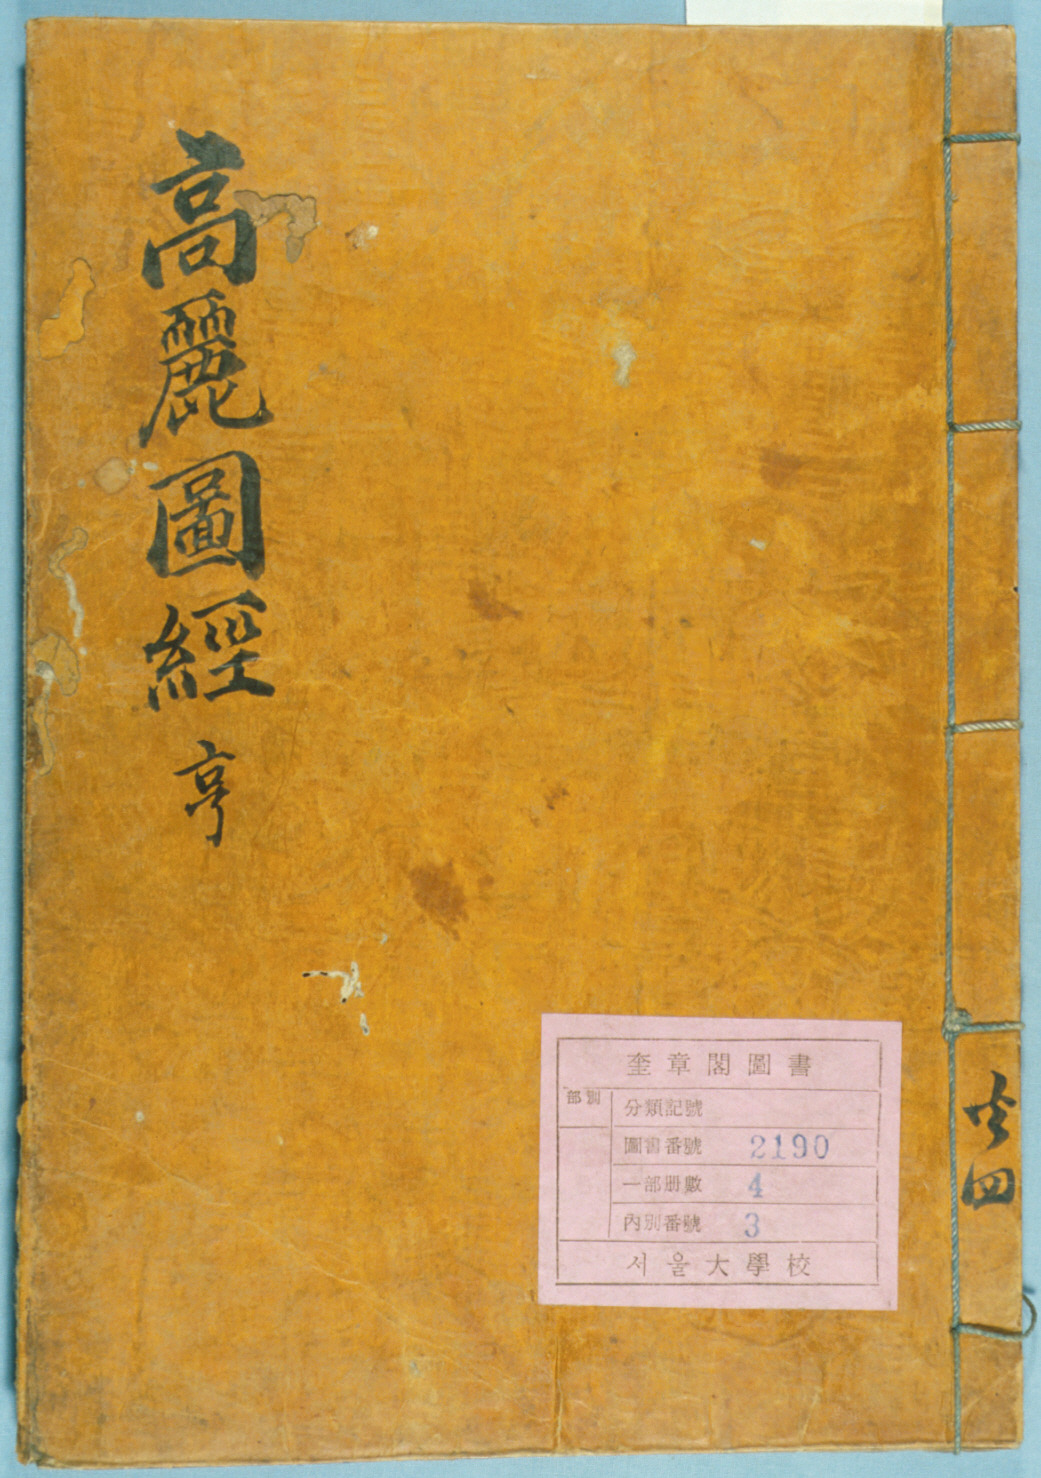 高麗圖經 亨
共四
奎章閣圖書
部別
分類記號
圖書番號 2190
一部册數 4
內別番號 3
서울大學校